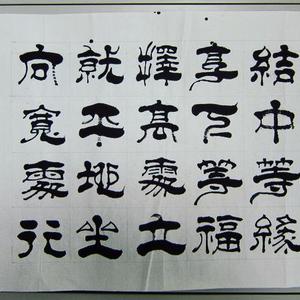 結中等緣
享下等福
擇高處立
就平地坐
向寬處行